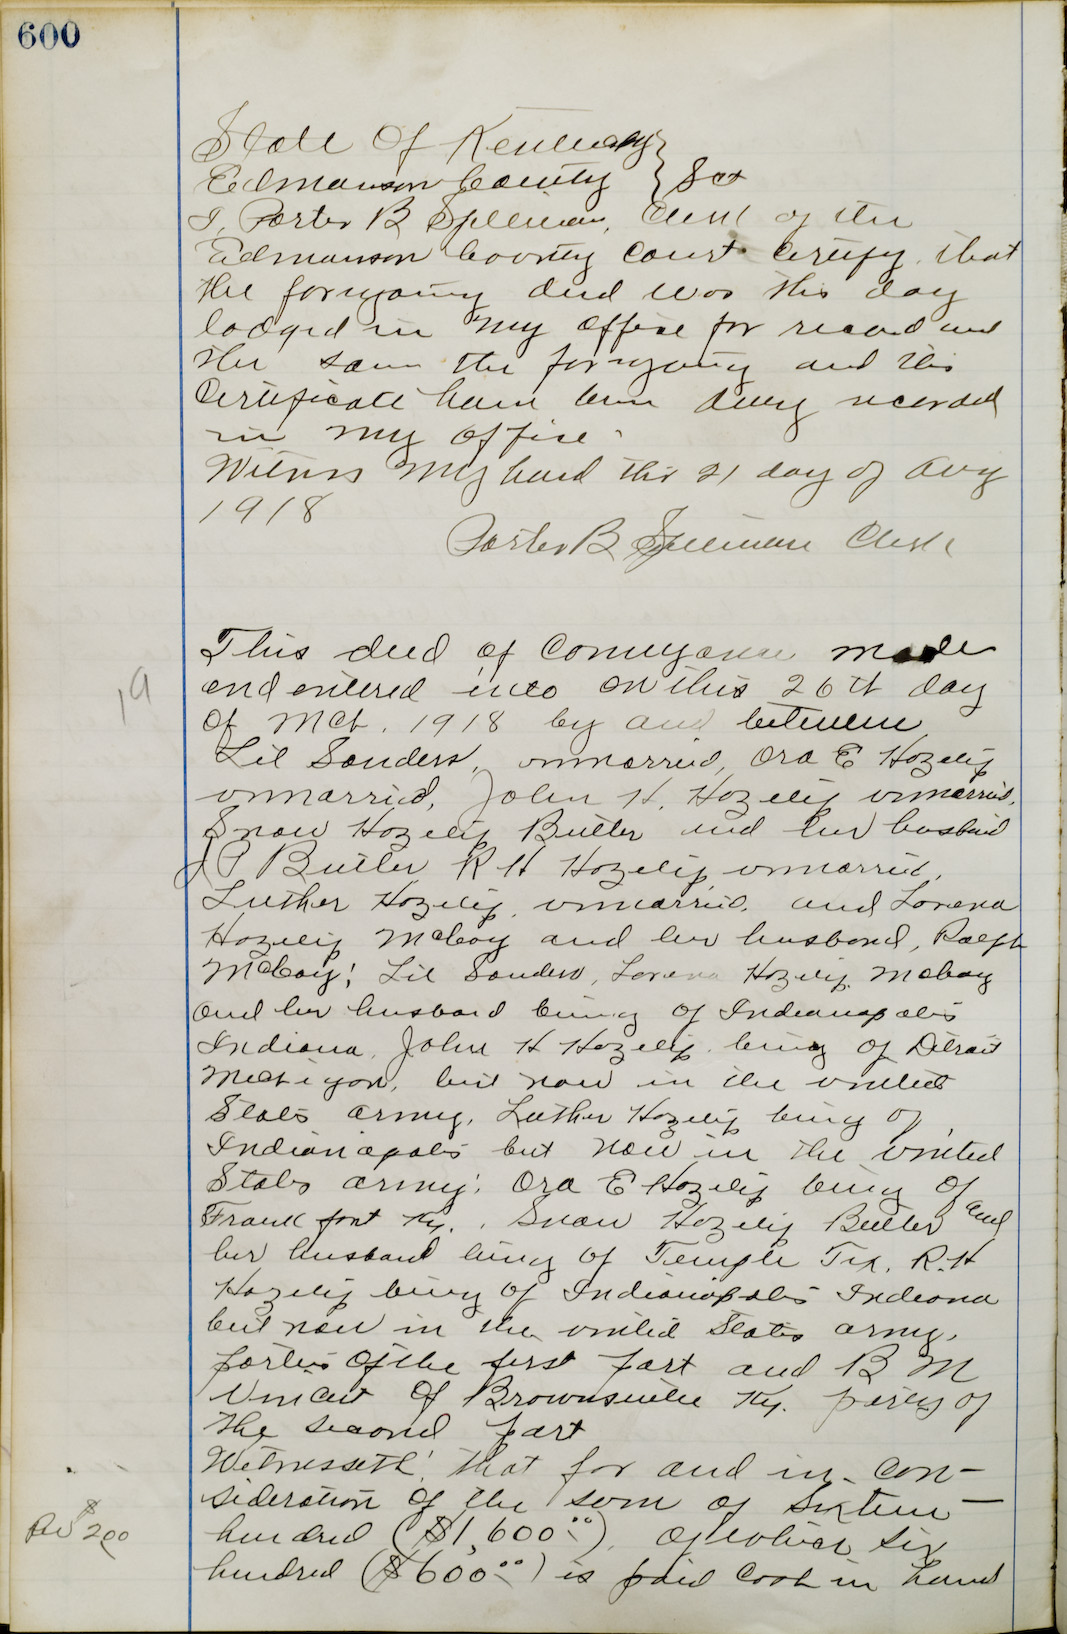 600
State Of Kentucky }
Edmonson County } Sct
I, Porter B Spillman, Clerk of the
Edmonson County Court Certify that
the forgoing deed was this day
lodged in my office for record and
the same the forgoing and this
Certificate have been duly recorded
in my office.
Witness my hand this 21 day of Aug
1918
Porter B Spillman Clerk
This deed of Conveyance made
19
and entered into on this 26th day
of Mch. 1918 by and between
Lil Sanders, unmarried, Ora E Hazelip
unmarried, John H. Hazelip unmarried,
Snow Hazelip Butler and her husband
J P Butler R H Hazelip, unmarried,
Luther Hazelip, unmarried, and Lorena
Hazelip McCoy and her husband, Ralph
McCoy; Lil Sanders, Lorena Hazelip McCoy
and her husband being of Indianapolis
Indiana, John H Hazelip being of Detroit
Michigan, but now in the United
States army, Luther Hazelip being of
Indianapolis but now in the United
States army; Ora E Hazelip being of
Frankfort Ky., Snow Hazelip Butler and
her husband being of Temple Tex, R.H
Hazelip being of Indianapolis Indiana
but now in the United States army,
parties of the first part and B M
Vincent of Brownsville Ky. party of
the second part
Witnesseth: that for and in con-
sideration of the sum of Sixteen
Rev $200
hundred ($1,600.00), of which six
hundred ($600.00) is paid Cash in hand